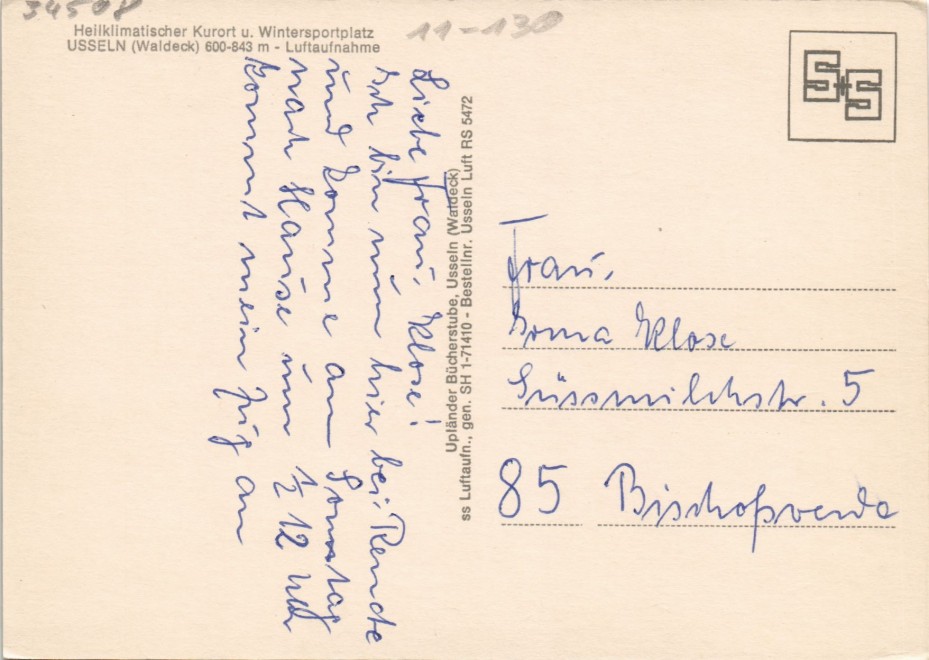 34508
11-130
Heilklimatischer Kurort u. Wintersportplatz
USSELN (Waldeck) 600-843 m - Luftaufnahme
Liebe Frau Klose!
Ich bin nun hier bei Rende
und komme am Sonntag
nach Hause um 1/2 12 Uhr
kommt mein Zug an
Upländer Bücherstube, Usseln (Waldeck)
ss Luftaufn., gen. SH 1-71410 - Bestellnr. Usseln Luft RS 5472
S+S
Frau
Irma Klose
Süssmilchstr. 5
85 Bischofswerda